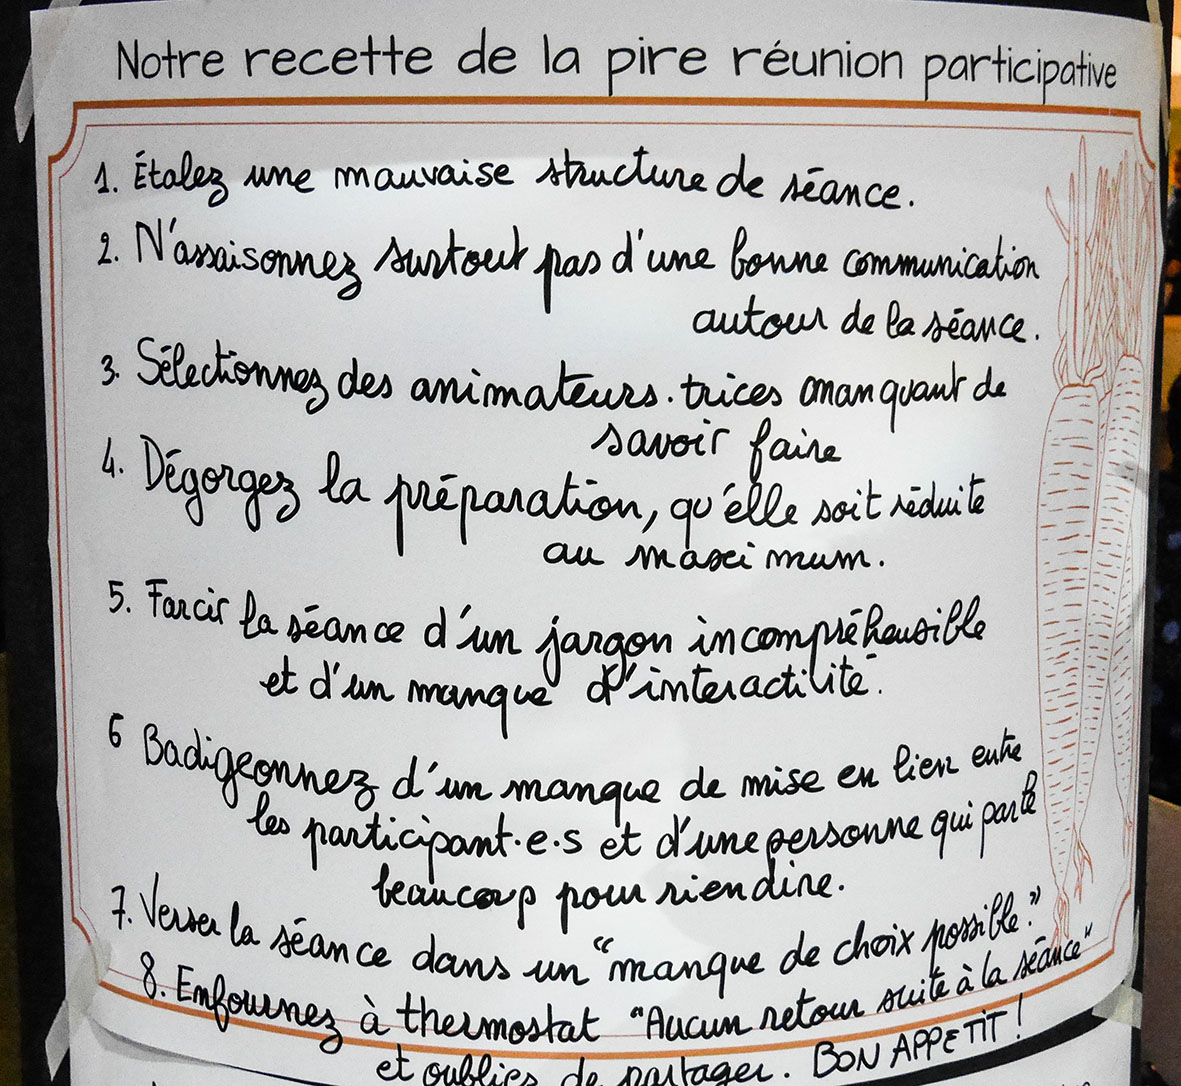 Notre recette de la pire réunion participative
1. Étalez une mauvaise structure de séance.
2. N'assaisonnez surtout pas d'une bonne communication
autour de la séance.
3. Sélectionnez des animateurs.trices manquant de
savoir faire
4. Dégorgez la préparation, qu'elle soit réduite
au maximum.
5. Farcir la séance d'un jargon incompréhensible
et d'un manque d'interactivité.
6 Badigeonnez d'un manque de mise en lien entre
les participant.e.s et d'une personne qui parle
beaucoup pour rien dire.
7. Verser la séance dans un "manque de choix possible."
8. Enfournez à thermostat "Aucun retour suite à la séance"
et oubliez de partager. BON APPETIT !